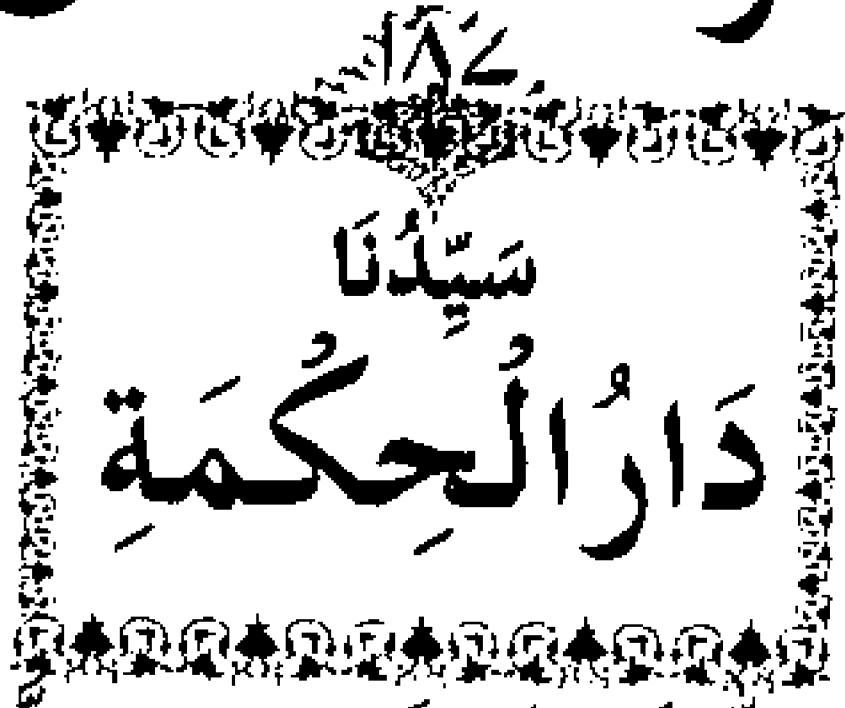 سَيِّدُنَا
دَارُ الْحِكْمَةِ